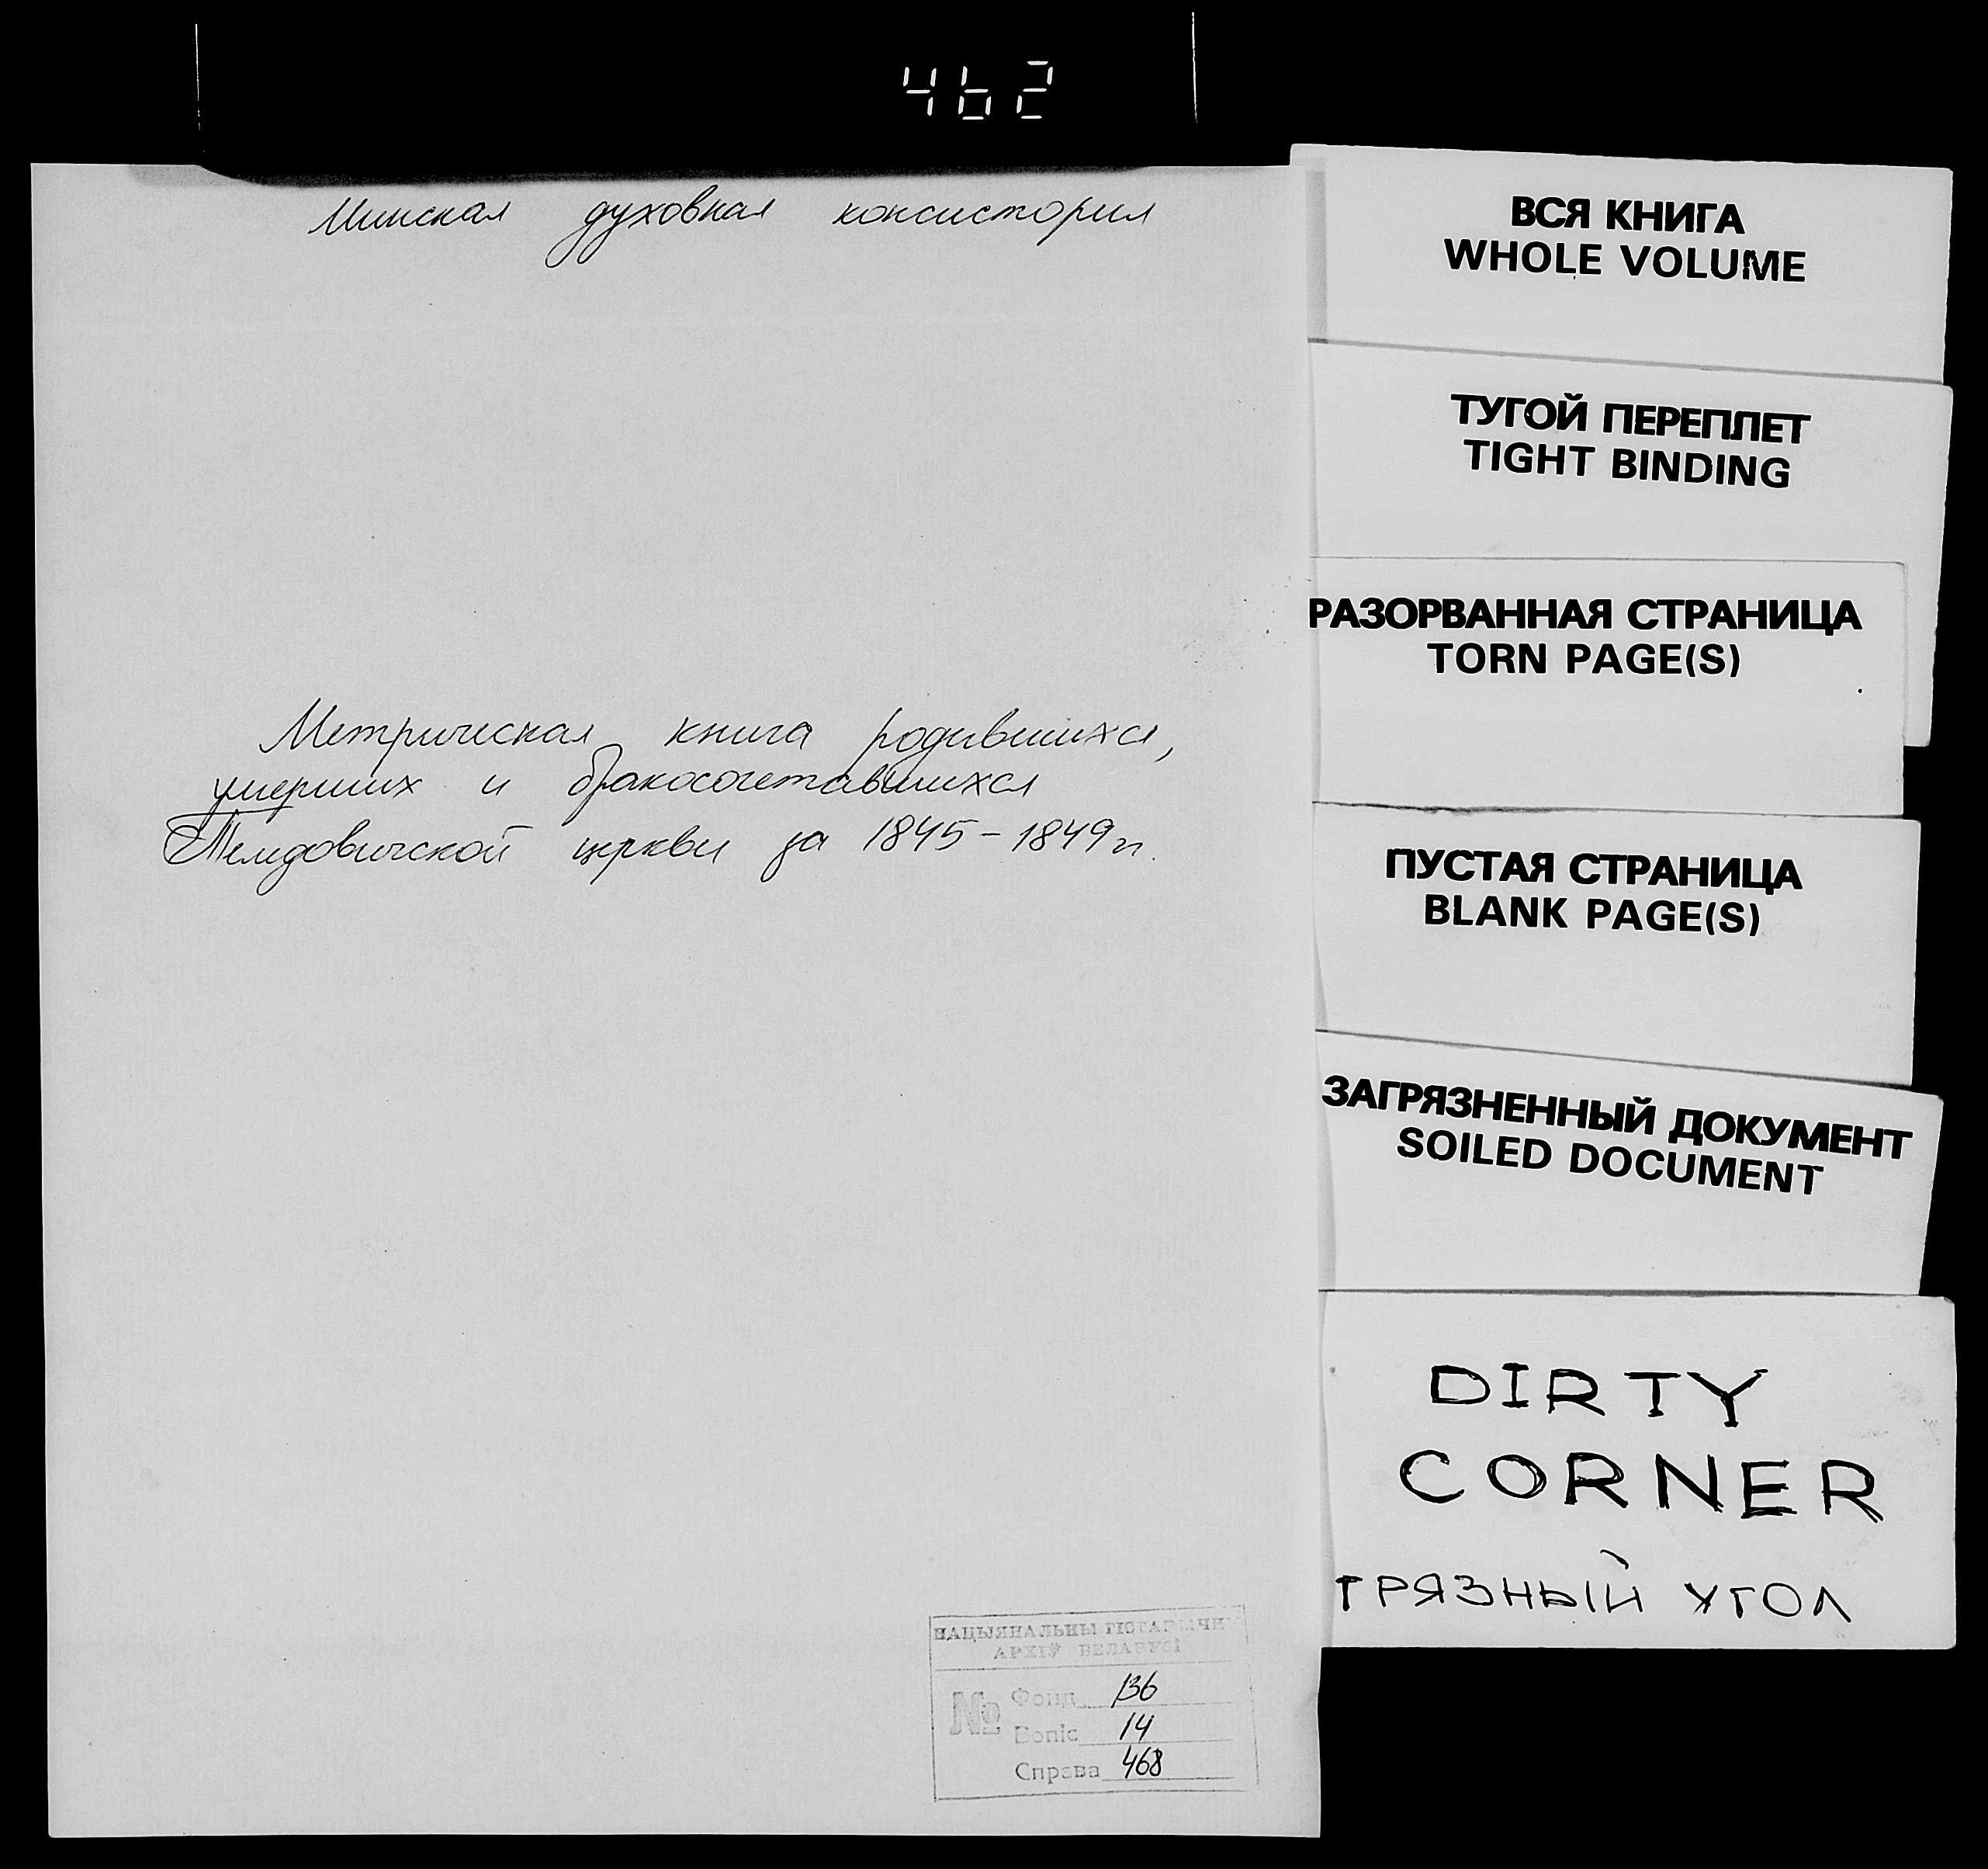 462
Минская духовная консистория
Метрическая книга родившихся,
умерших и бракосочетавшихся
церкви за 1845-1849 гг.
НАЦЫЯНАЛЬНЫ ГІСТАРЫЧНЫ
АРХІЎ БЕЛАРУСІ
№
Фонд 136
Вопіс 14
Справа 468
ВСЯ КНИГА
WHOLE VOLUME
ТУГОЙ ПЕРЕПЛЕТ
TIGHT BINDING
РАЗОРВАННАЯ СТРАНИЦА
TORN PAGE(S)
ПУСТАЯ СТРАНИЦА
BLANK PAGE(S)
ЗАГРЯЗНЕННЫЙ ДОКУМЕНТ
SOILED DOCUMENT
DIRTY
CORNER
ГРЯЗНЫЙ УГОЛ